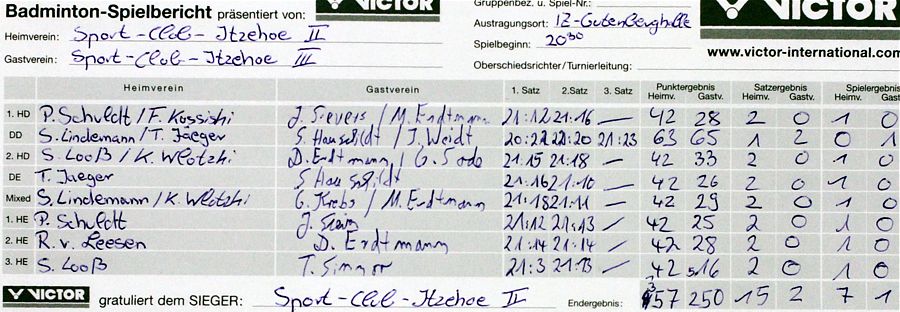 Badminton-Spielbericht präsentiert von: VICTOR Gruppenbez. u. Spiel-Nr.: VICTOR
Heimverein: Sport-Club-Itzehoe II Austragungsort: IZ-Gutenberghalle
Gastverein: Sport-Club-Itzehoe III Spielbeginn: 20³⁰
Oberschiedsrichter/Turnierleitung: www.victor-international.com
Heimverein Gastverein 1. Satz 2.Satz 3. Satz Punktergebnis Heimv. Gastv. Satzergebnis Heimv. Gastv. Spielergebnis Heimv. Gastv.
1. HD P. Schuldt/F. Kossishi J. Sievers/M. Erdtmann 21:12 21:16 — 42 28 2 0 1 0
DD S. Lindemann/T. Jaeger S. Hauschildt/J. Weidt 20:22 22:20 21:23 63 65 1 2 0 1
2. HD S. Looß/K. Wlotzhi D. Erdtmann/G. Sode 21:15 21:18 — 42 33 2 0 1 0
DE T. Jaeger S. Hauschildt 21:16 21:10 — 42 26 2 0 1 0
Mixed S. Lindemann/K. Wlotzhi G. Krebs/M. Erdtmann 21:18 21:11 — 42 29 2 0 1 0
1. HE P. Schuldt J. 21:12 21:13 — 42 25 2 0 1 0
2. HE R. v. Leesen D. Erdtmann 21:14 21:14 — 42 28 2 0 1 0
3. HE S. Looß T. 21:3 21:13 — 42 16 2 0 1 0
VICTOR gratuliert dem SIEGER: Sport-Club-Itzehoe II Endergebnis: 357 250 15 2 7 1